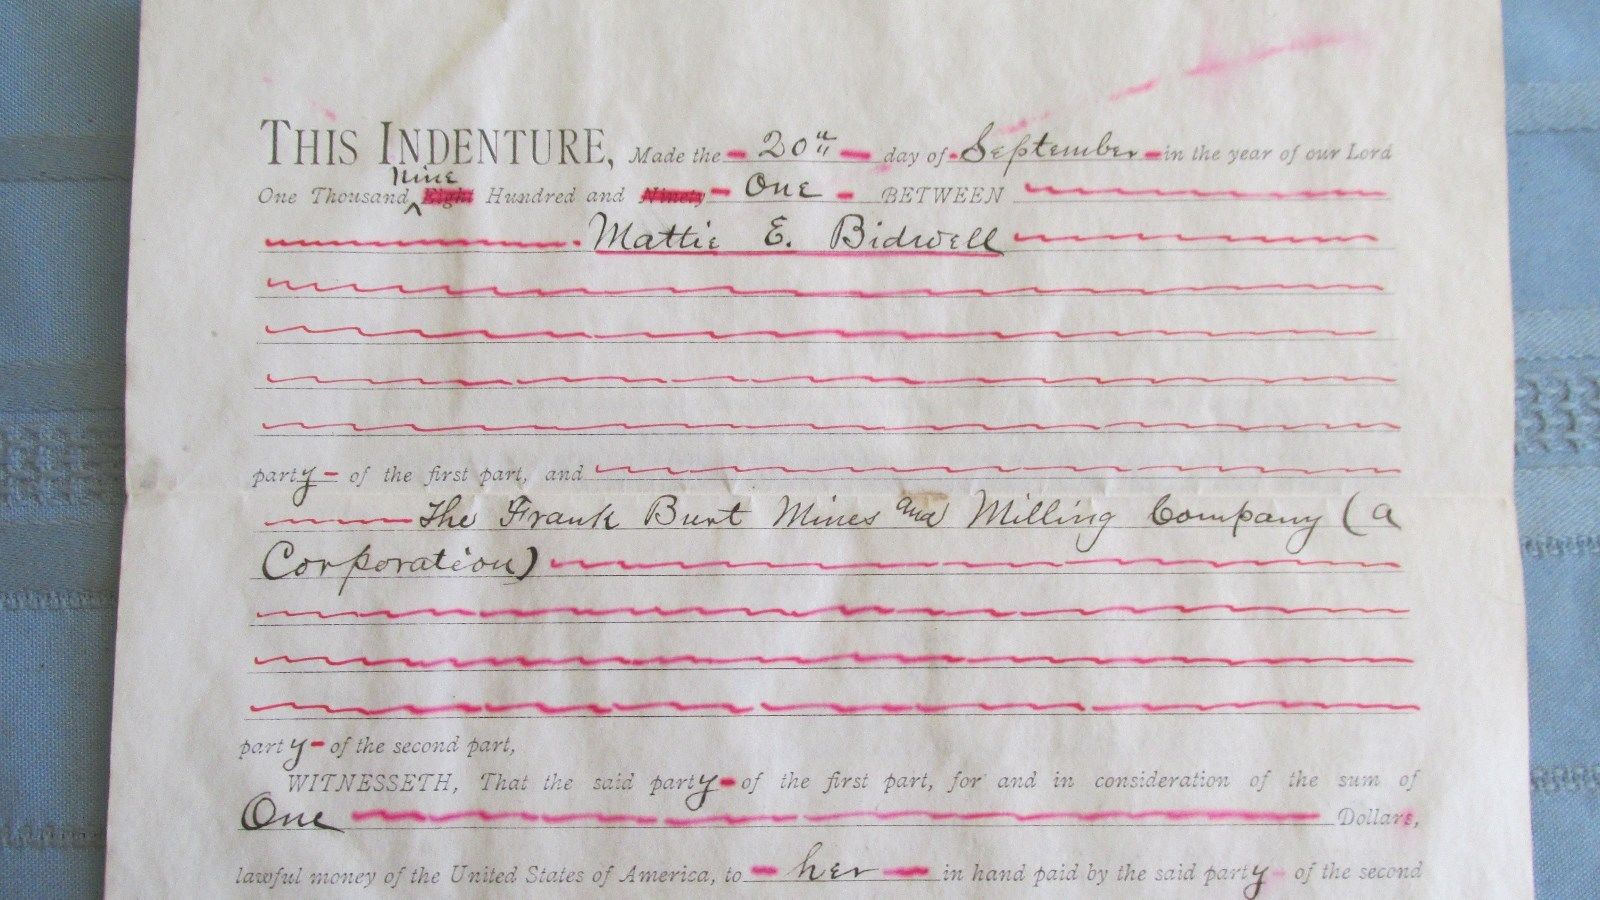 THIS INDENTURE, Made the 20th day of September in the year of our Lord
One Thousand Nine Eight Hundred and Ninety One BETWEEN
Mattie E. Bidwell
party of the first part, and
The Frank Burt Mines and Milling Company (a
Corporation)
party of the second part,
WITNESSETH, That the said party of the first part, for and in consideration of the sum of
One Dollars,
lawful money of the United States of America, to her in hand paid by the said party of the second